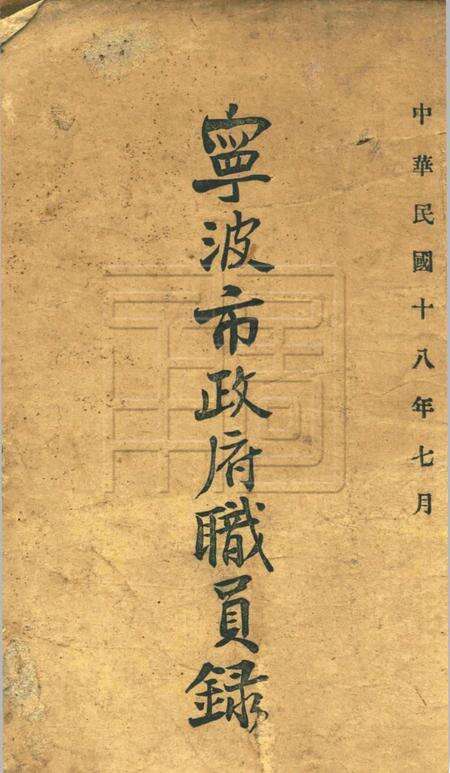 中華民國十八年七月
寧波市政府職員錄